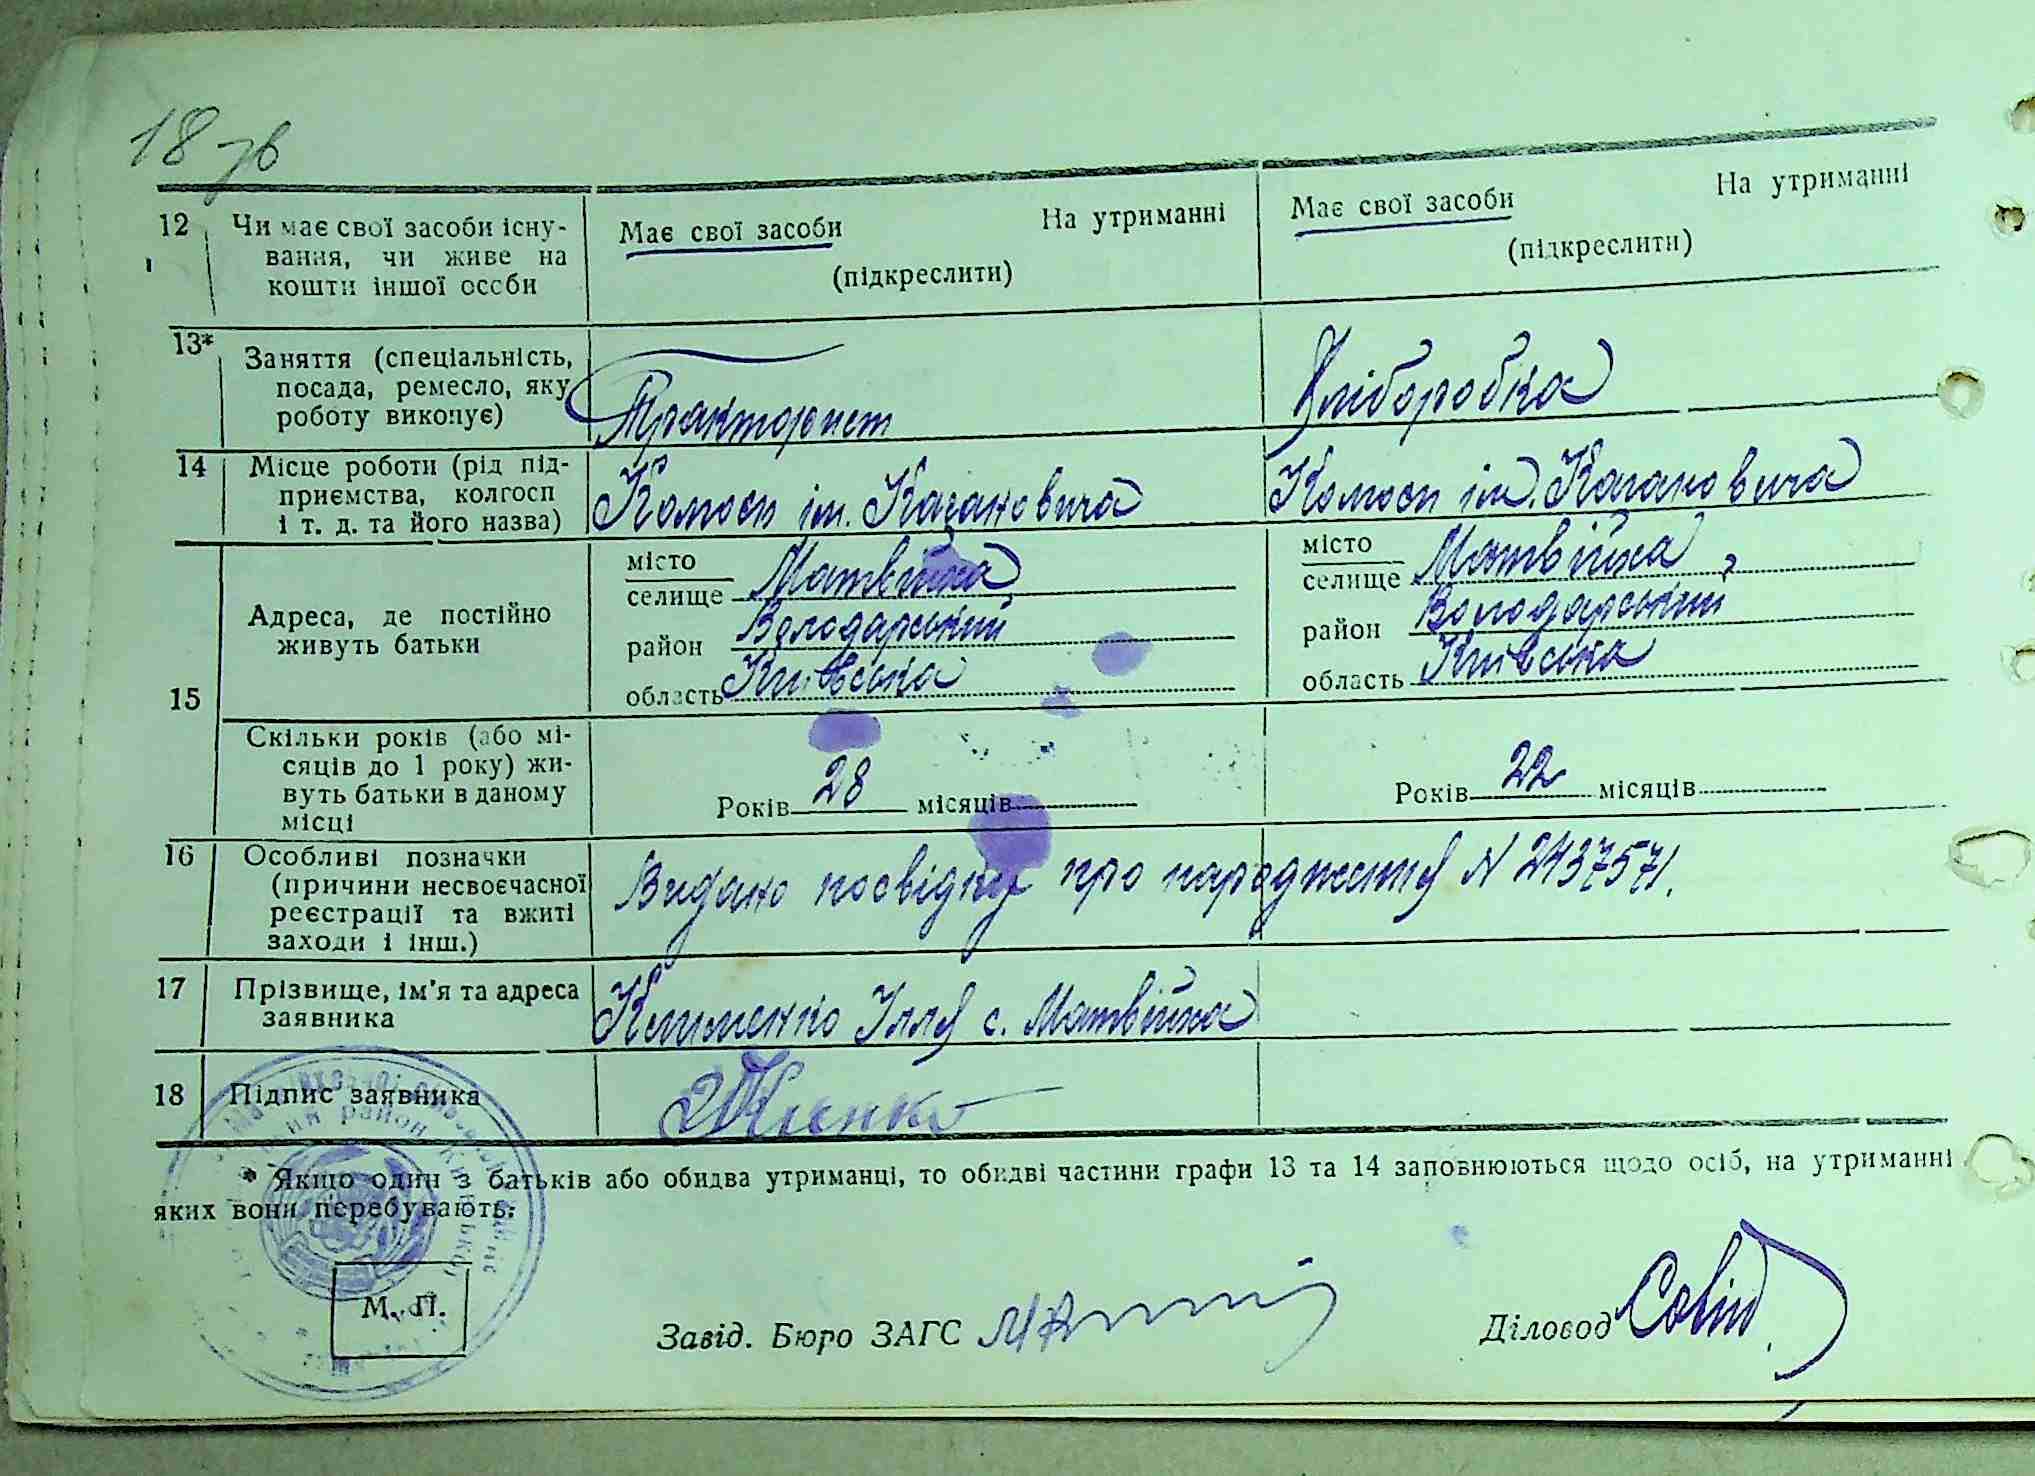 18 зв
12 Чи має свої засоби існу-
вання, чи живе на
кошти іншої особи
Має свої засоби На утриманні
(підкреслити)
Має свої засоби На утриманні
(підкреслити)
13* Заняття (спеціальність,
посада, ремесло, яку
роботу виконує)
Тракторист
Хліборобка
14 Місце роботи (рід під-
приємства, колгосп
і т. д. та його назва)
ім. Кагановича
ім. Кагановича
15
Адреса, де постійно
живуть батьки
місто
селище Матвійха
район Володарський
область Київська
місто
селище Матвійха,
район Володарський
область Київська
Скільки років (або мі-
сяців до 1 року) жи-
вуть батьки в даному
місці
Років 28 місяців
Років 22 місяців
16 Особливі позначки
(причини несвоєчасної
реєстрації та вжиті
заходи і інш.)
Видано посвідку про народження N 2437571.
17 Прізвище, ім'я та адреса
заявника
Клименко Ілля с. Матвійха
18 Підпис заявника
* Якщо один з батьків або обидва утриманці, то обидві частини графи 13 та 14 заповнюються щодо осіб, на утриманні
яких вони перебувають.
М. П.
Завід. Бюро ЗАГС
Діловод